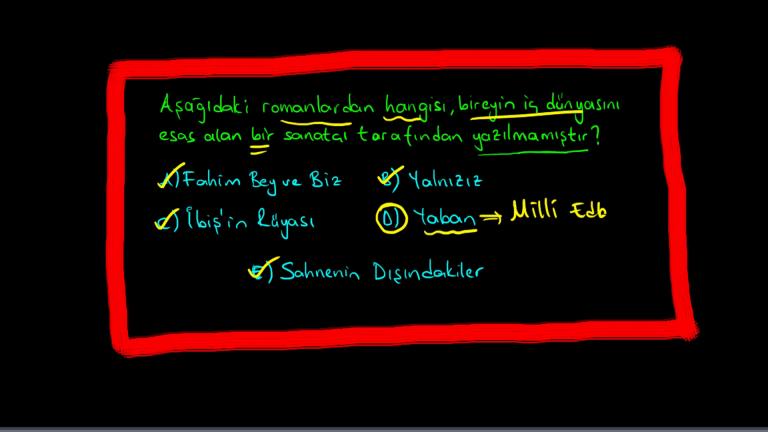 Aşağıdaki romanlardan hangisi, bireyin iç dünyasını
esas alan bir sanatçı tarafından yazılmamıştır?
A) Fahim Bey ve Biz B) Yalnızız
C) İbiş'in Rüyası D) Yaban ⇒ Milli Edb
E) Sahnenin Dışındakiler